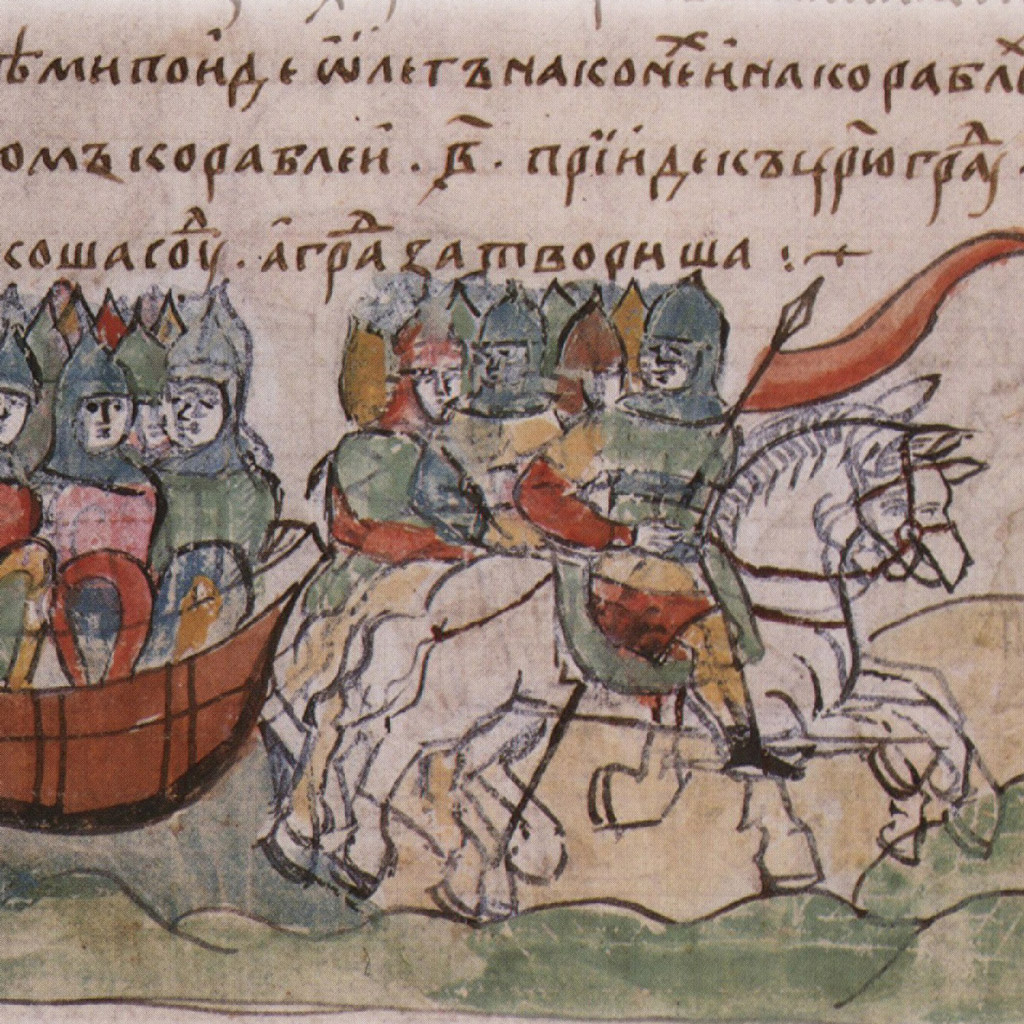 ѣми поиде ѿлегъ на конеⷯ и на кораблⷯе
омъ кораблеи . в҃ . прїиде къ цр҃ю граⷣу .
коша соуⷣ . а граⷣ затвориша :+